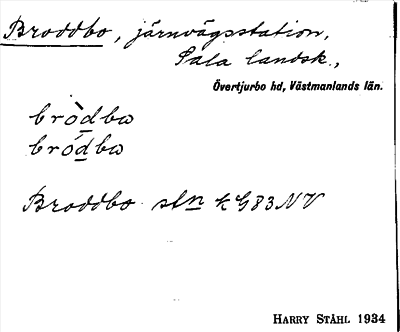 Broddbo, järnvägsstation,
Sala landsk.,
Övertjurbo hd, Västmanlands län.
bròdbω
bródbω
Broddbo stn k G83NV
HARRY STÅHL 1934